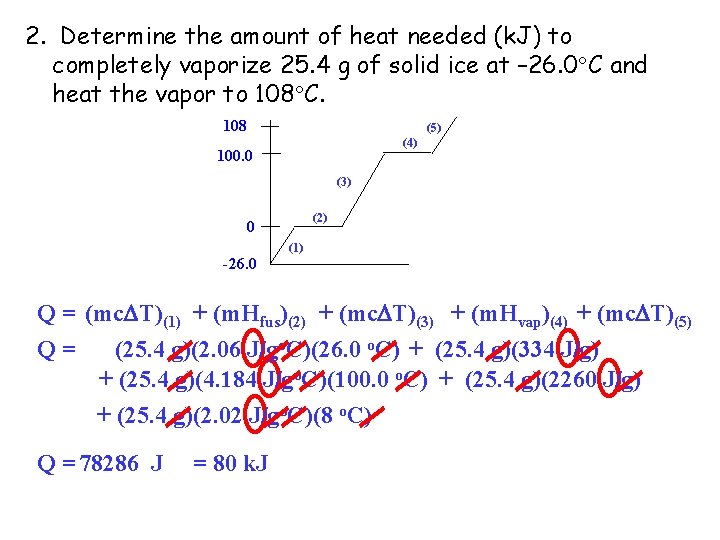 2. Determine the amount of heat needed (kJ) to
completely vaporize 25.4 g of solid ice at –26.0°C and
heat the vapor to 108°C.
108
(5)
(4)
100.0
(3)
(2)
0
(1)
-26.0
Q = (mcΔT)(1) + (m.Hfus)(2) + (mcΔT)(3) + (m.Hvap)(4) + (mcΔT)(5)
Q = (25.4 g)(2.06 J/g°C)(26.0 °C) + (25.4 g)(334 J/g)
+ (25.4 g)(4.184 J/g°C)(100.0 °C) + (25.4 g)(2260 J/g)
+ (25.4 g)(2.02 J/g°C)(8 °C)
Q = 78286 J = 80 kJ